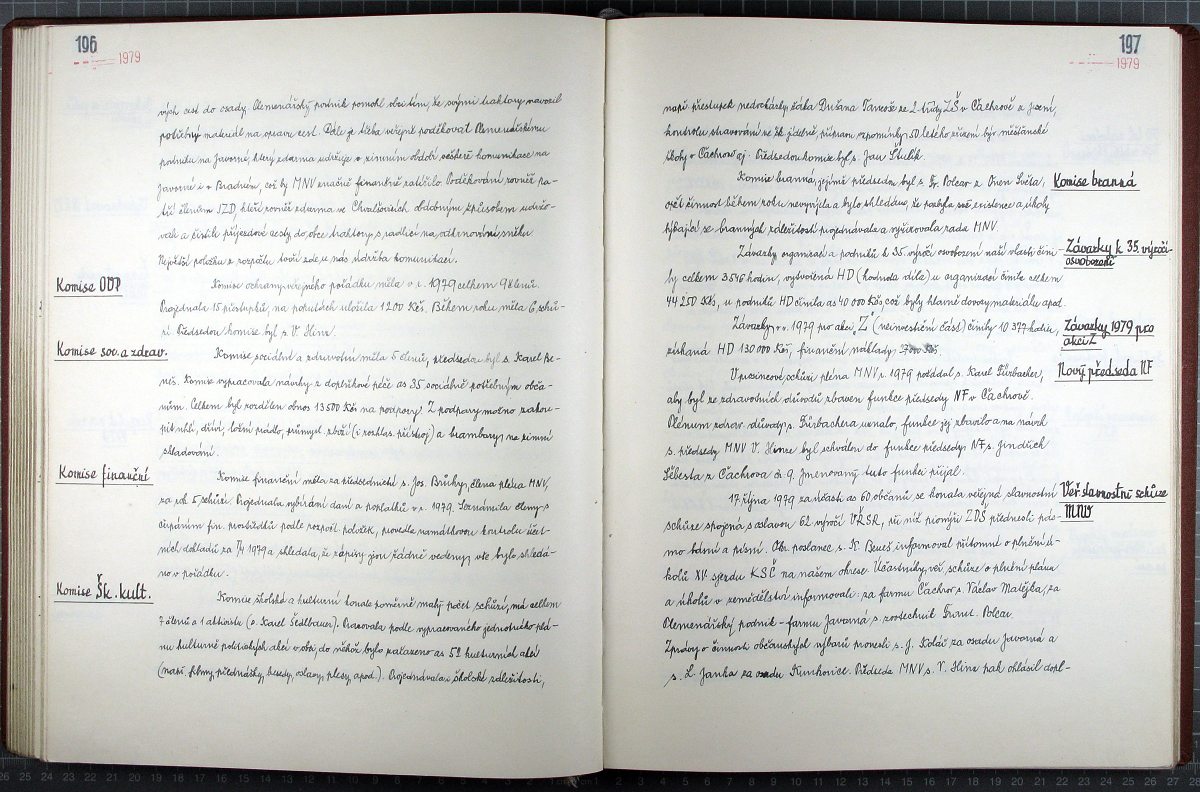 196
1979
vých cest do osady. Plemenářský podnik pomohl obci tím, že svými traktory navozil
potřebný materiál na opravu cest. Dále je třeba veřejně poděkovat Plemenářskému
podniku na Javorné, který zdarma udržuje v zimním období veškeré komunikace na
Javorné i v Bradném, což by MNV značně finančně zatížilo. Poděkování rovněž pa-
tří členům JZD, kteří rovněž zdarma ve Chvalšovicích obdobným způsobem udržo-
vali a čistili příjezdové cesty do obce traktory s radlicí na odhrnování sněhu.
Největší položku z rozpočtu tvoří zde u nás údržba komunikací.
Komise OVP
Komise ochrany veřejného pořádku měla v r. 1979 celkem 9 členů.
Projednala 15 přestupků, na pokutách uložila 1200 Kčs. Během roku měla 6 schů-
zí. Předsedou komise byl s. V. Hinz.
Komise soc. a zdrav.
Komise sociální a zdravotní měla 5 členů, předsedou byl s. Karel Be-
neš. Komise vypracovala návrhy z doplňkové péče as 35 sociálně potřebným obča-
nům. Celkem byl rozdělen obnos 13500 Kčs na podpory. Z podpory možno zakou-
pit uhlí, dříví, ložní prádlo, průmysl. zboží (i rozhlas. přístroj) a brambory na zimní
skladování.
Komise finanční
Komise finanční měla za předsednictví s. Jos. Brůhy, člena pléna MNV,
za rok 5 schůzí. Projednala vybírání daní a poplatků v r. 1979. Seznámila členy s
čerpáním fin. prostředků podle rozpočt. položek, provedla namátkovou kontrolu účet-
ních dokladů za 1979 a shledala, že zápisy jsou řádně vedeny, vše bylo shledá-
no v pořádku.
Komise Šk. kult.
Komise školská a kulturní konala poměrně malý počet schůzí, má celkem
7 členů a 1 aktivistu (s. Karel Sedlbauer). Pracovala podle vypracovaného jednotného plá-
nu kulturně politických akcí v obci, do něhož bylo zařazeno as 52 kulturních akcí
(např. filmy, přednášky, besedy, oslavy, plesy, apod.). Projednávala i školské záležitosti,
197
1979
např. přestupek nedocházky žáka Dušana ze 2. třídy ZŠ v Čachrově a jiní,
kontrolu stravování ve šk. jídelně, přípravu vzpomínky 50 letého zřízení býv. měšťanské
školy v Čachrově aj. Předsedou komise byl s. Jan Štulík.
Komise branná, jejímž předsedou byl s. Fr. Polcar z Onen Světa,
Komise branná
opět činnost během roku nevyvíjela a bylo shledáno, že pozbyla své existence a úkoly
týkající se branných záležitostí projednávala a vyřizovala rada MNV.
Závazky organizací a podniků k 35. výročí osvobození naší vlasti čini-
Závazky k 35. výročí
osvobození
ly celkem 3546 hodin, vytvořená HD (hodnota díla) u organizací činila celkem
44250 Kčs, u podniků HD činila as 40000 Kčs, což byly hlavně dovozy materiálu apod.
Závazky v r. 1979 pro akci „Z" (neinvestiční část) činily 10377 hodin,
Závazky 1979 pro
akci Z
získaná HD 130000 Kčs, finanční náklady: Kčs.
V prosincové schůzi pléna MNV r. 1979 požádal s. Karel Fürbacher,
Nový předseda NF
aby byl ze zdravotních důvodů zbaven funkce předsedy NF v Čachrově.
Plénum zdrav. důvody s. Fürbachera uznalo, funkce jej zbavilo a na návrh
s. předsedy MNV V. Hinze byl schválen do funkce předsedy NF s. Jindřich
Šebesta z Čachrova č. 9. Jmenovaný tuto funkci přijal.
17. října 1979 za účasti as 60 občanů se konala veřejná slavnostní
Veř. slavnostní schůze
MNV
schůze spojená s oslavou 62. výročí VŘSR, při níž pionýři ZDŠ přednesli pás-
mo básní a písní. Okr. poslanec s. K. Beneš informoval přítomné o plnění ú-
kolů XV. sjezdu KSČ na našem okrese. Účastníky veř. schůze o plnění plánu
a úkolů v zemědělství informovali: za farmu Čachrov s. Václav Matějka, za
Plemenářský podnik - farmu Javorná s. zootechnik Frant. Polcar.
Zprávy o činnosti občanských výborů provedli s. J. Kolář za osadu Javorná a
s. L. Janka za osadu Kunkovice. Předseda MNV s. V. Hinz pak ohlásil dopl-